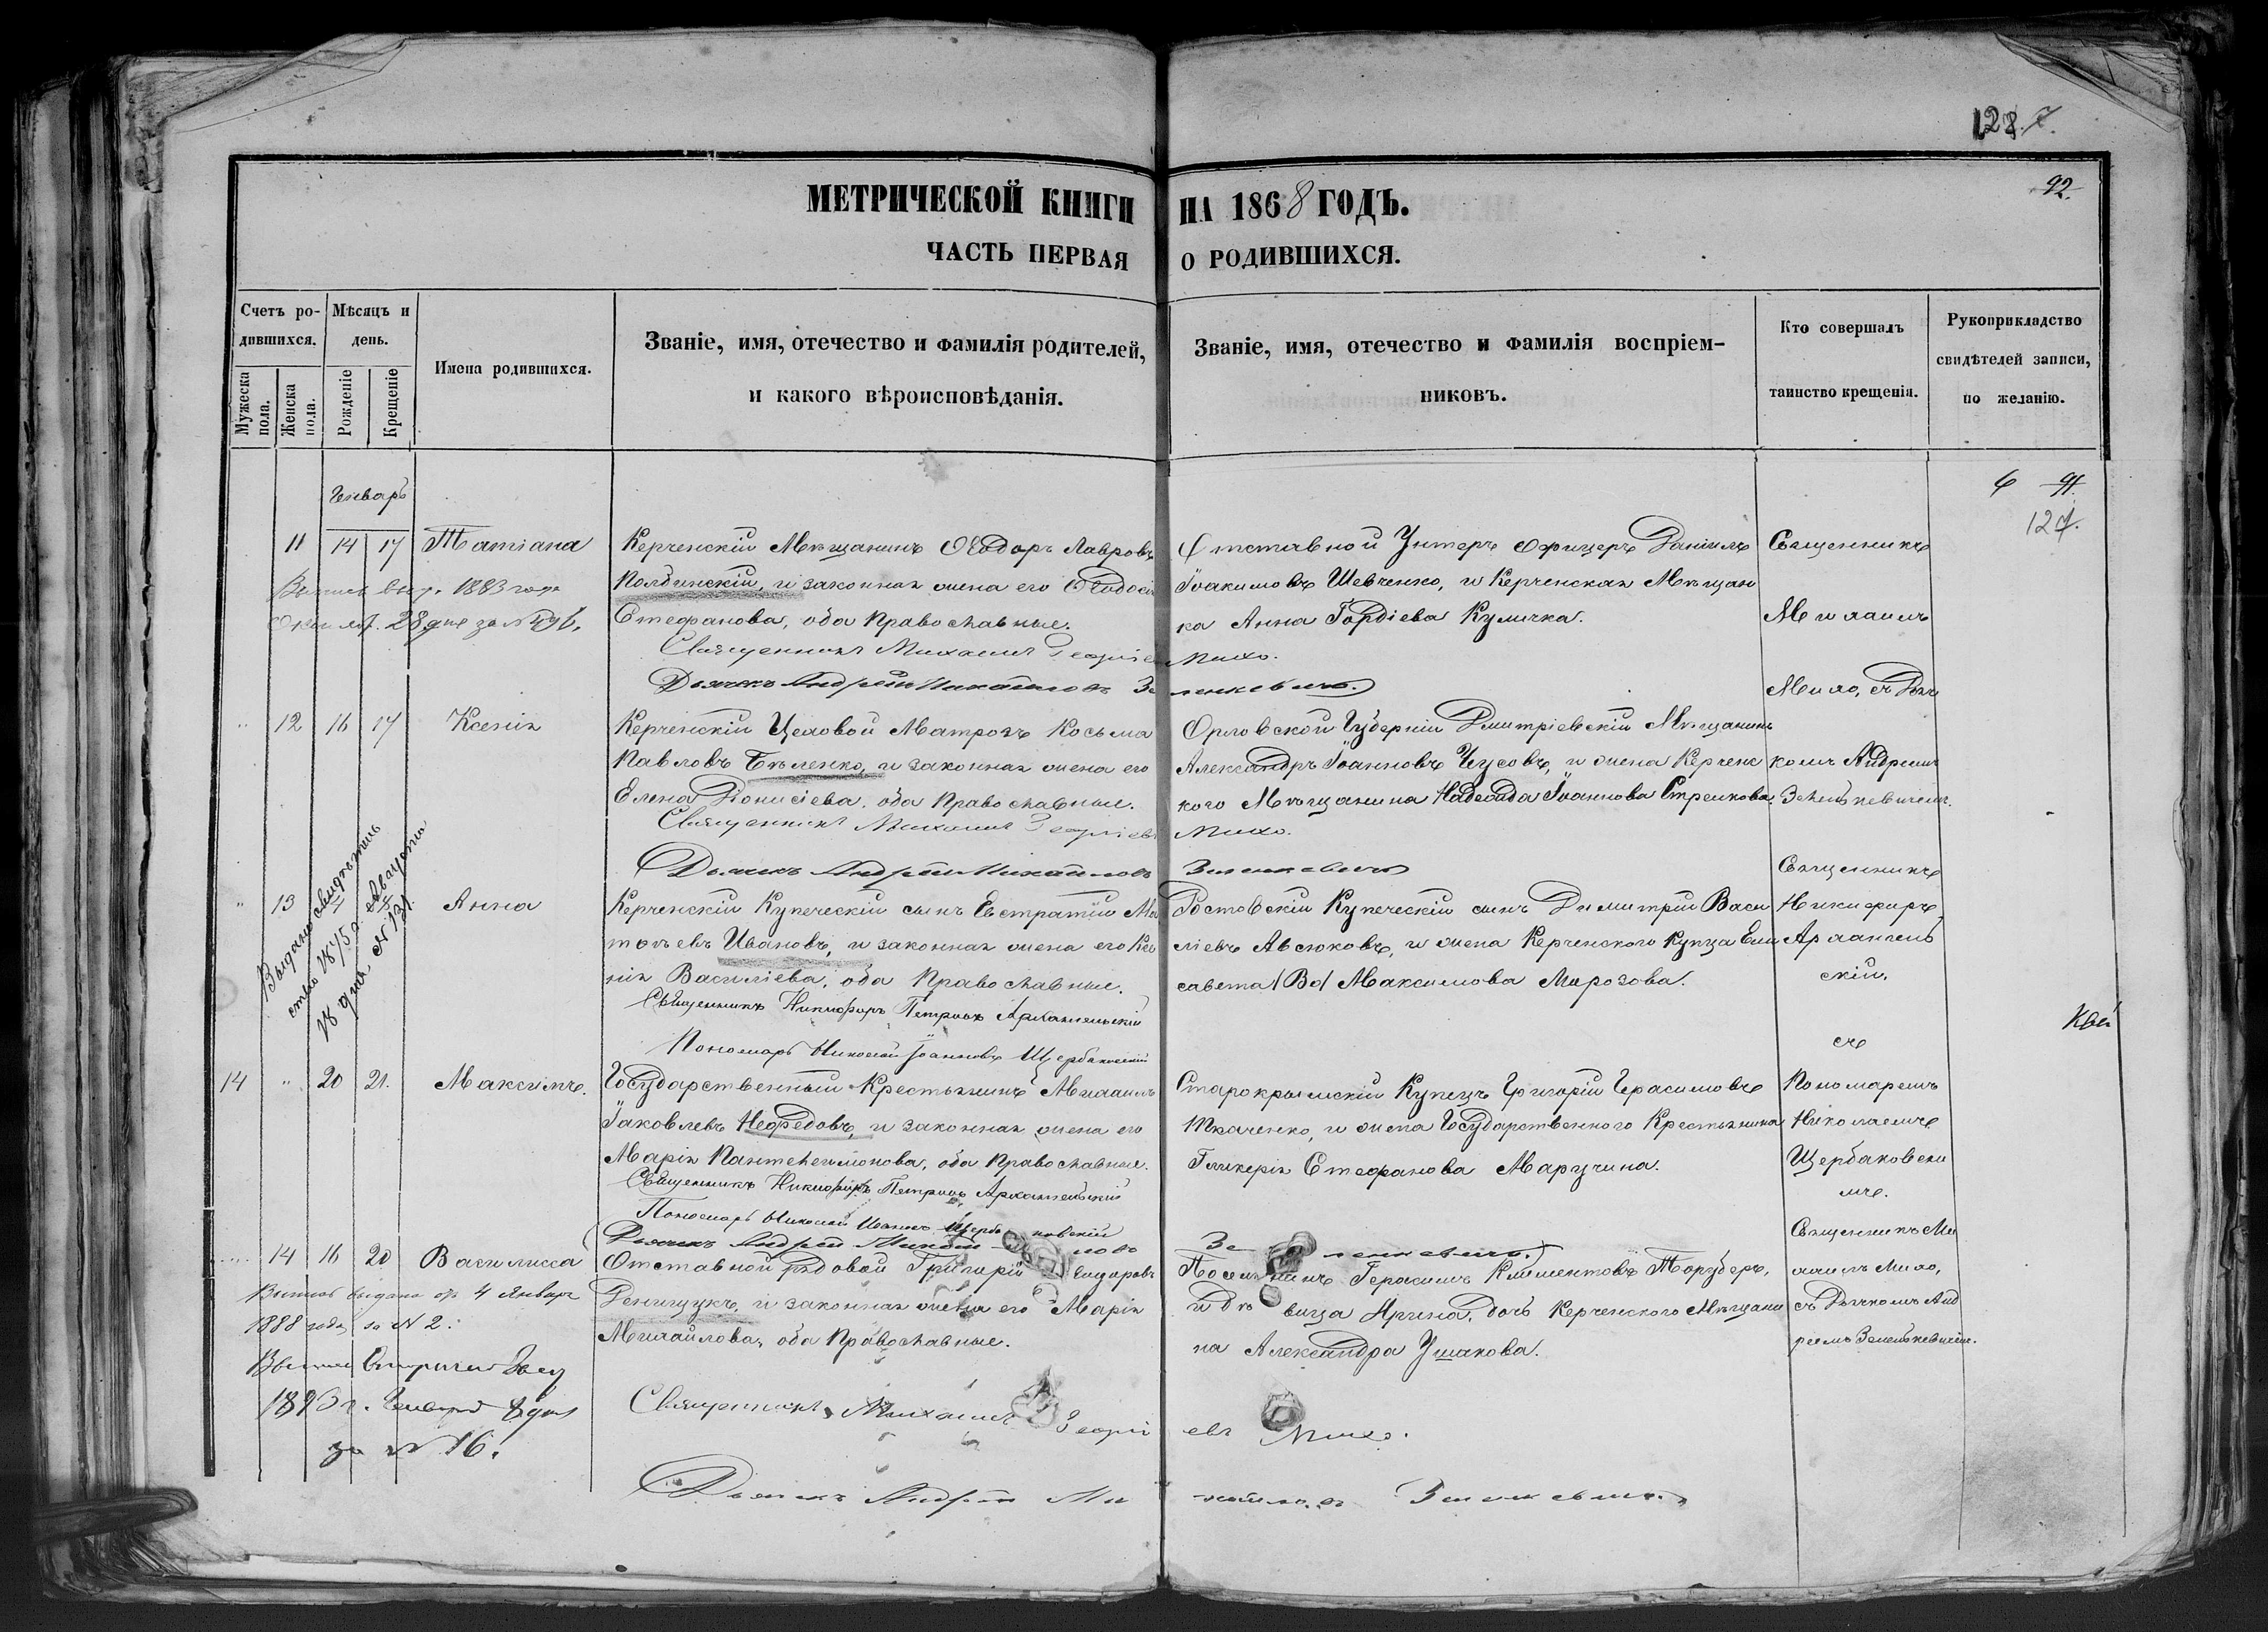 128.7.
92.
МЕТРИЧЕСКОЙ КНИГИ НА 1868 ГОДЪ.
ЧАСТЬ ПЕРВАЯ О РОДИВШИХСЯ.
Счетъ родившихся.
Мужеска пола.
Женска пола.
Мѣсяцъ и день.
Рожденіе
Крещеніе
Имена родившихся.
Званіе, имя, отечество и фамилія родителей,
и какого вѣроисповѣданія.
Званіе, имя, отечество и фамилія воспріем-
никовъ.
Кто совершалъ
таинство крещенія.
Рукоприкладство
свидѣтелей записи,
по желанію.
Генварь
6 91.
127.
11 14 17 Татіана
Керченскій Мѣщанинъ Ѳеодоръ Лавровъ
Полдинскій, и законная жена его Ѳеодосія
Стефанова, оба Православные.
Священникъ Михаилъ Георгіевъ Михо.
Дьячекъ Андрей Михайловъ Зеленкевичъ.
Отставной Унтеръ Офицеръ Даніилъ
Іоакимовъ Шевченко, и Керченская Мѣщан
ка Анна Гордіева Куличка.
Священникъ
Михаилъ
Михо, съ Дья
1883 года
28 дня за №
12 16 17 Ксенія
Керченскій Цеховой Матрозъ Косьма
Павловъ Бѣленко, и законная жена его
Елена Діонисіева, оба Православные.
Священникъ Михаилъ Георгіевъ Михо.
Дьячекъ Андрей Михайловъ Зеленкевичъ
Орловской Губерніи Дмитріевскій Мѣщанинъ
Александръ Іоанновъ Чусовъ, и жена Керченс
кого Мѣщанина Надежда Іоаннова Стрелкова.
комъ Андреемъ
Зеленкевичемъ.
13 Анна
Выдано свидѣтель
ство 1875 г. Августа
18 дня № 131.
Керченскій Купеческій сынъ Евстратій Мат
ѳѣевъ Ивановъ, и законная жена его Ксе
нія Василіева, оба Православные.
Священникъ Никифоръ Петровъ Архангельскій
Пономарь Николай Іоанновъ Щербаковскій
Ростовскій Купеческій сынъ Димитрій Васи
ліевъ Авсюковъ, и жена Керченского Купца Ели
савета /Во/ Максимова Морозова.
Священникъ
Никифоръ
Архангель
скій,
съ
14 20 21. Максимъ.
Государственный Крестьянинъ Михаилъ
Іаковлевъ Нефедовъ, и законная жена его
Марія Пантелеимонова, оба Православные.
Священникъ Никифоръ Петровъ Архангельскій
Пономарь Николай Иванов Щербаковскій
Дьячекъ Андрей Михайловъ Зеленкевичъ.
Старокрымскій Купецъ Григорій Герасимовъ
Ткаченко, и жена Государственного Крестьянина
Гликерія Стефанова Маручина.
Пономаремъ
Николаемъ
Щербаковски
мъ.
14 16 20 Василисса
Отставной рядовой Григорій
Денищукъ, и законная жена его Марія
Михайлова, оба Православные.
Священникъ Михаилъ Георгіевъ Михо.
Дьячекъ Андрей Михайловъ Зеленкевичъ.
Поселянинъ Герасимъ Климентовъ
и дѣвица Ирина, дочь Керченского Мѣщани
на Александра Ушакова.
Священникъ Ми
хаилъ Михо,
съ Дьячкомъ Анд
реемъ Зеленкевичем.
Выпись выдана 4 Января
1888 года за № 2.
8 дня
за № 16.